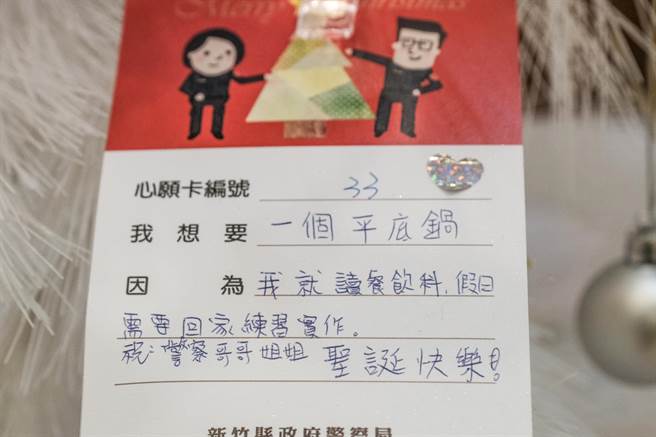 Merry Christmas
心願卡編號 33
我想要 一個平底鍋
因為 我就讀餐飲科,假日
需要回家練習實作。
祝:警察哥哥姐姐 聖誕快樂!
新竹縣政府警察局